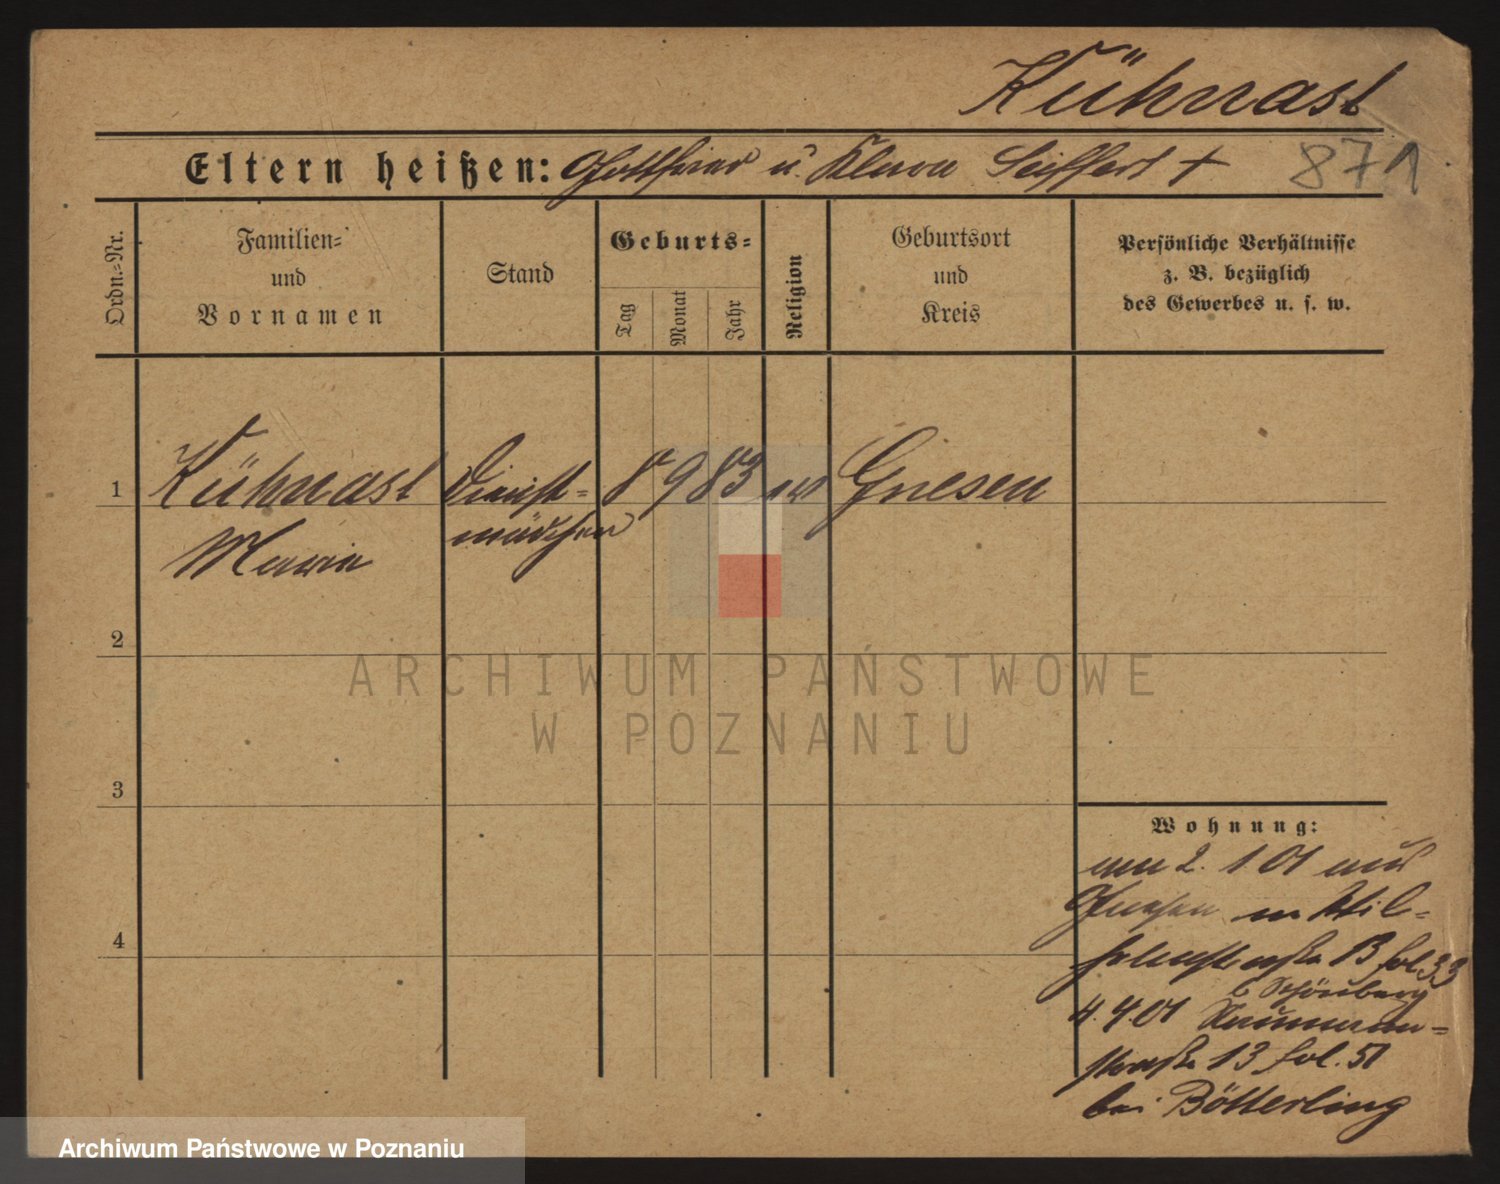 Kühnast
Eltern heißen: Gottfried u. Klara Seiffert +
871
Ordn.=Nr.
Familien=
und
Vornamen
Stand
Geburts=
Tag
Monat
Jahr
Religion
Geburtsort
und
Kreis
Persönliche Verhältnisse
z. B. bezüglich
des Gewerbes u. s. w.
1
Kühnast
Maria
Dienst=
mädchen
8 9 83
Gnesen
2
3
4
Wohnung:
am 2. 1 01 aus
Gnesen in Wil=
helmstraße 13 fol 33
b Schönberg
4.4.01 Naumann=
straße 13 fol. 51
bei Bötterling
ARCHIWUM PAŃSTWOWE
W POZNANIU
Archiwum Państwowe w Poznaniu